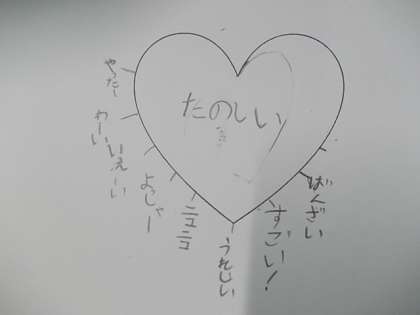 たのしい
やったー
わーい
いえーい
よっしゃー
ニコニコ
うれしい
すごい!
ばんざい